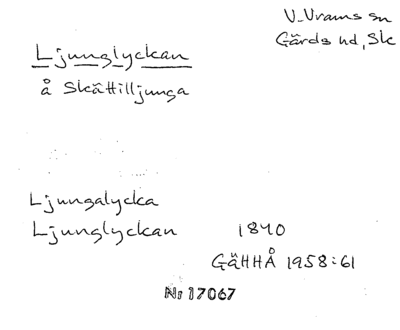 V. Vrams sn
Gärds hd, Sk
Ljunglyckan
å Skättilljunga
Ljungalycka
Ljunglyckan 1840
GäHHÅ 1958:61
Nr 17067